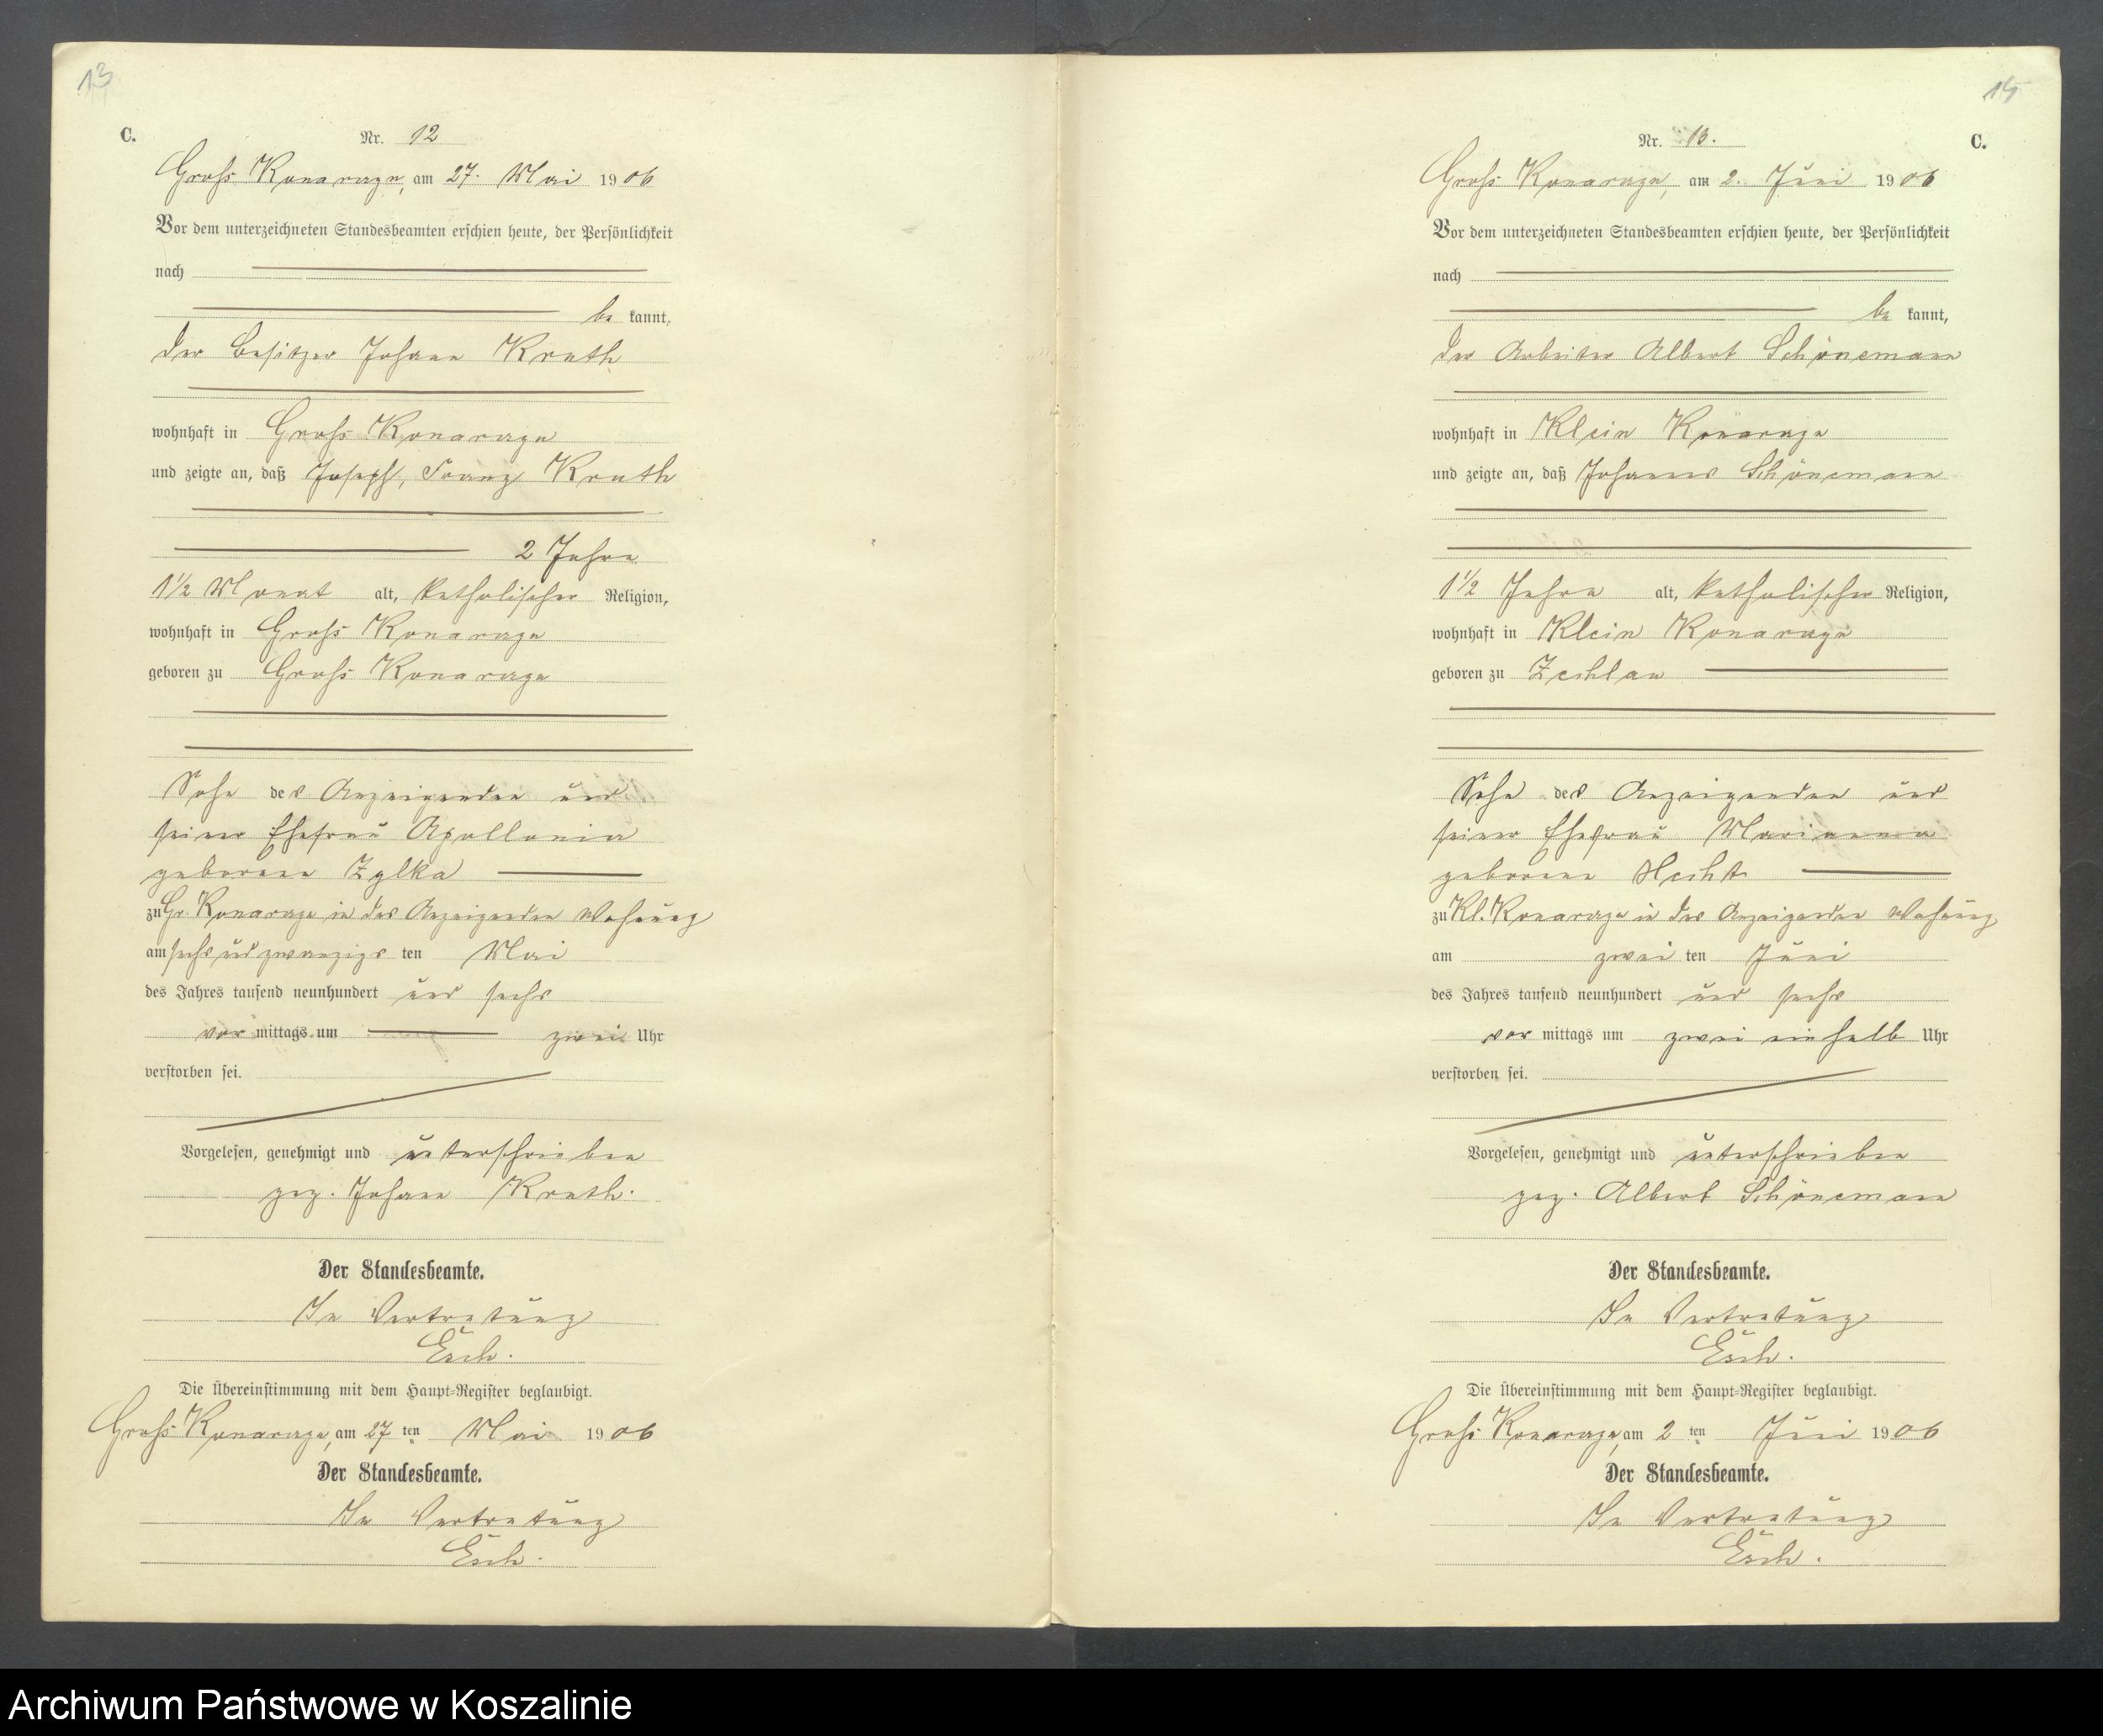 13
C.
Nr. 12
Groß Konarzyn, am 27. Mai 1906
Vor dem unterzeichneten Standesbeamten erschien heute, der Persönlichkeit
nach
be kannt,
der Besitzer Johann Knuth
wohnhaft in Groß Konarzyn
und zeigte an, daß Joseph, Franz Knuth
2 Jahre
1½ Monat alt, katholischer Religion,
wohnhaft in Groß Konarzyn
geboren zu Groß Konarzyn
Sohn des Anzeigenden und
seiner Ehefrau Apollonia
geborene Zylka
zu Gr. Konarzyn in des Anzeigenden Wohnung
am sechs und zwanzigs ten Mai
des Jahres tausend neunhundert und sechs
vor mittags um zwei Uhr
verstorben sei.
Vorgelesen, genehmigt und unterschrieben
gez. Johann Knuth.
Der Standesbeamte.
In Vertretung
Esch.
Die Übereinstimmung mit dem Haupt-Register beglaubigt.
Groß Konarzyn, am 27 ten Mai 1906
Der Standesbeamte.
In Vertretung
Esch.
C.
Nr. 13.
Groß Konarzyn, am 2. Juni 1906
Vor dem unterzeichneten Standesbeamten erschien heute, der Persönlichkeit
nach
be kannt,
der Arbeiter Albert Schönemann
wohnhaft in Klein Konarzyn
und zeigte an, daß Johannes Schönemann
1½ Jahre alt, katholischer Religion,
wohnhaft in Klein Konarzyn
geboren zu Zechlau
Sohn des Anzeigenden und
seiner Ehefrau Marianna
geborene Hecht
zu Kl. Konarzyn in des Anzeigenden Wohnung
am zwei ten Juni
des Jahres tausend neunhundert und sechs
vor mittags um zwei einhalb Uhr
verstorben sei.
Vorgelesen, genehmigt und unterschrieben
gez. Albert Schönemann
Der Standesbeamte.
In Vertretung
Esch.
Die Übereinstimmung mit dem Haupt-Register beglaubigt.
Groß Konarzyn, am 2 ten Juni 1906
Der Standesbeamte.
In Vertretung
Esch.
Archiwum Państwowe w Koszalinie